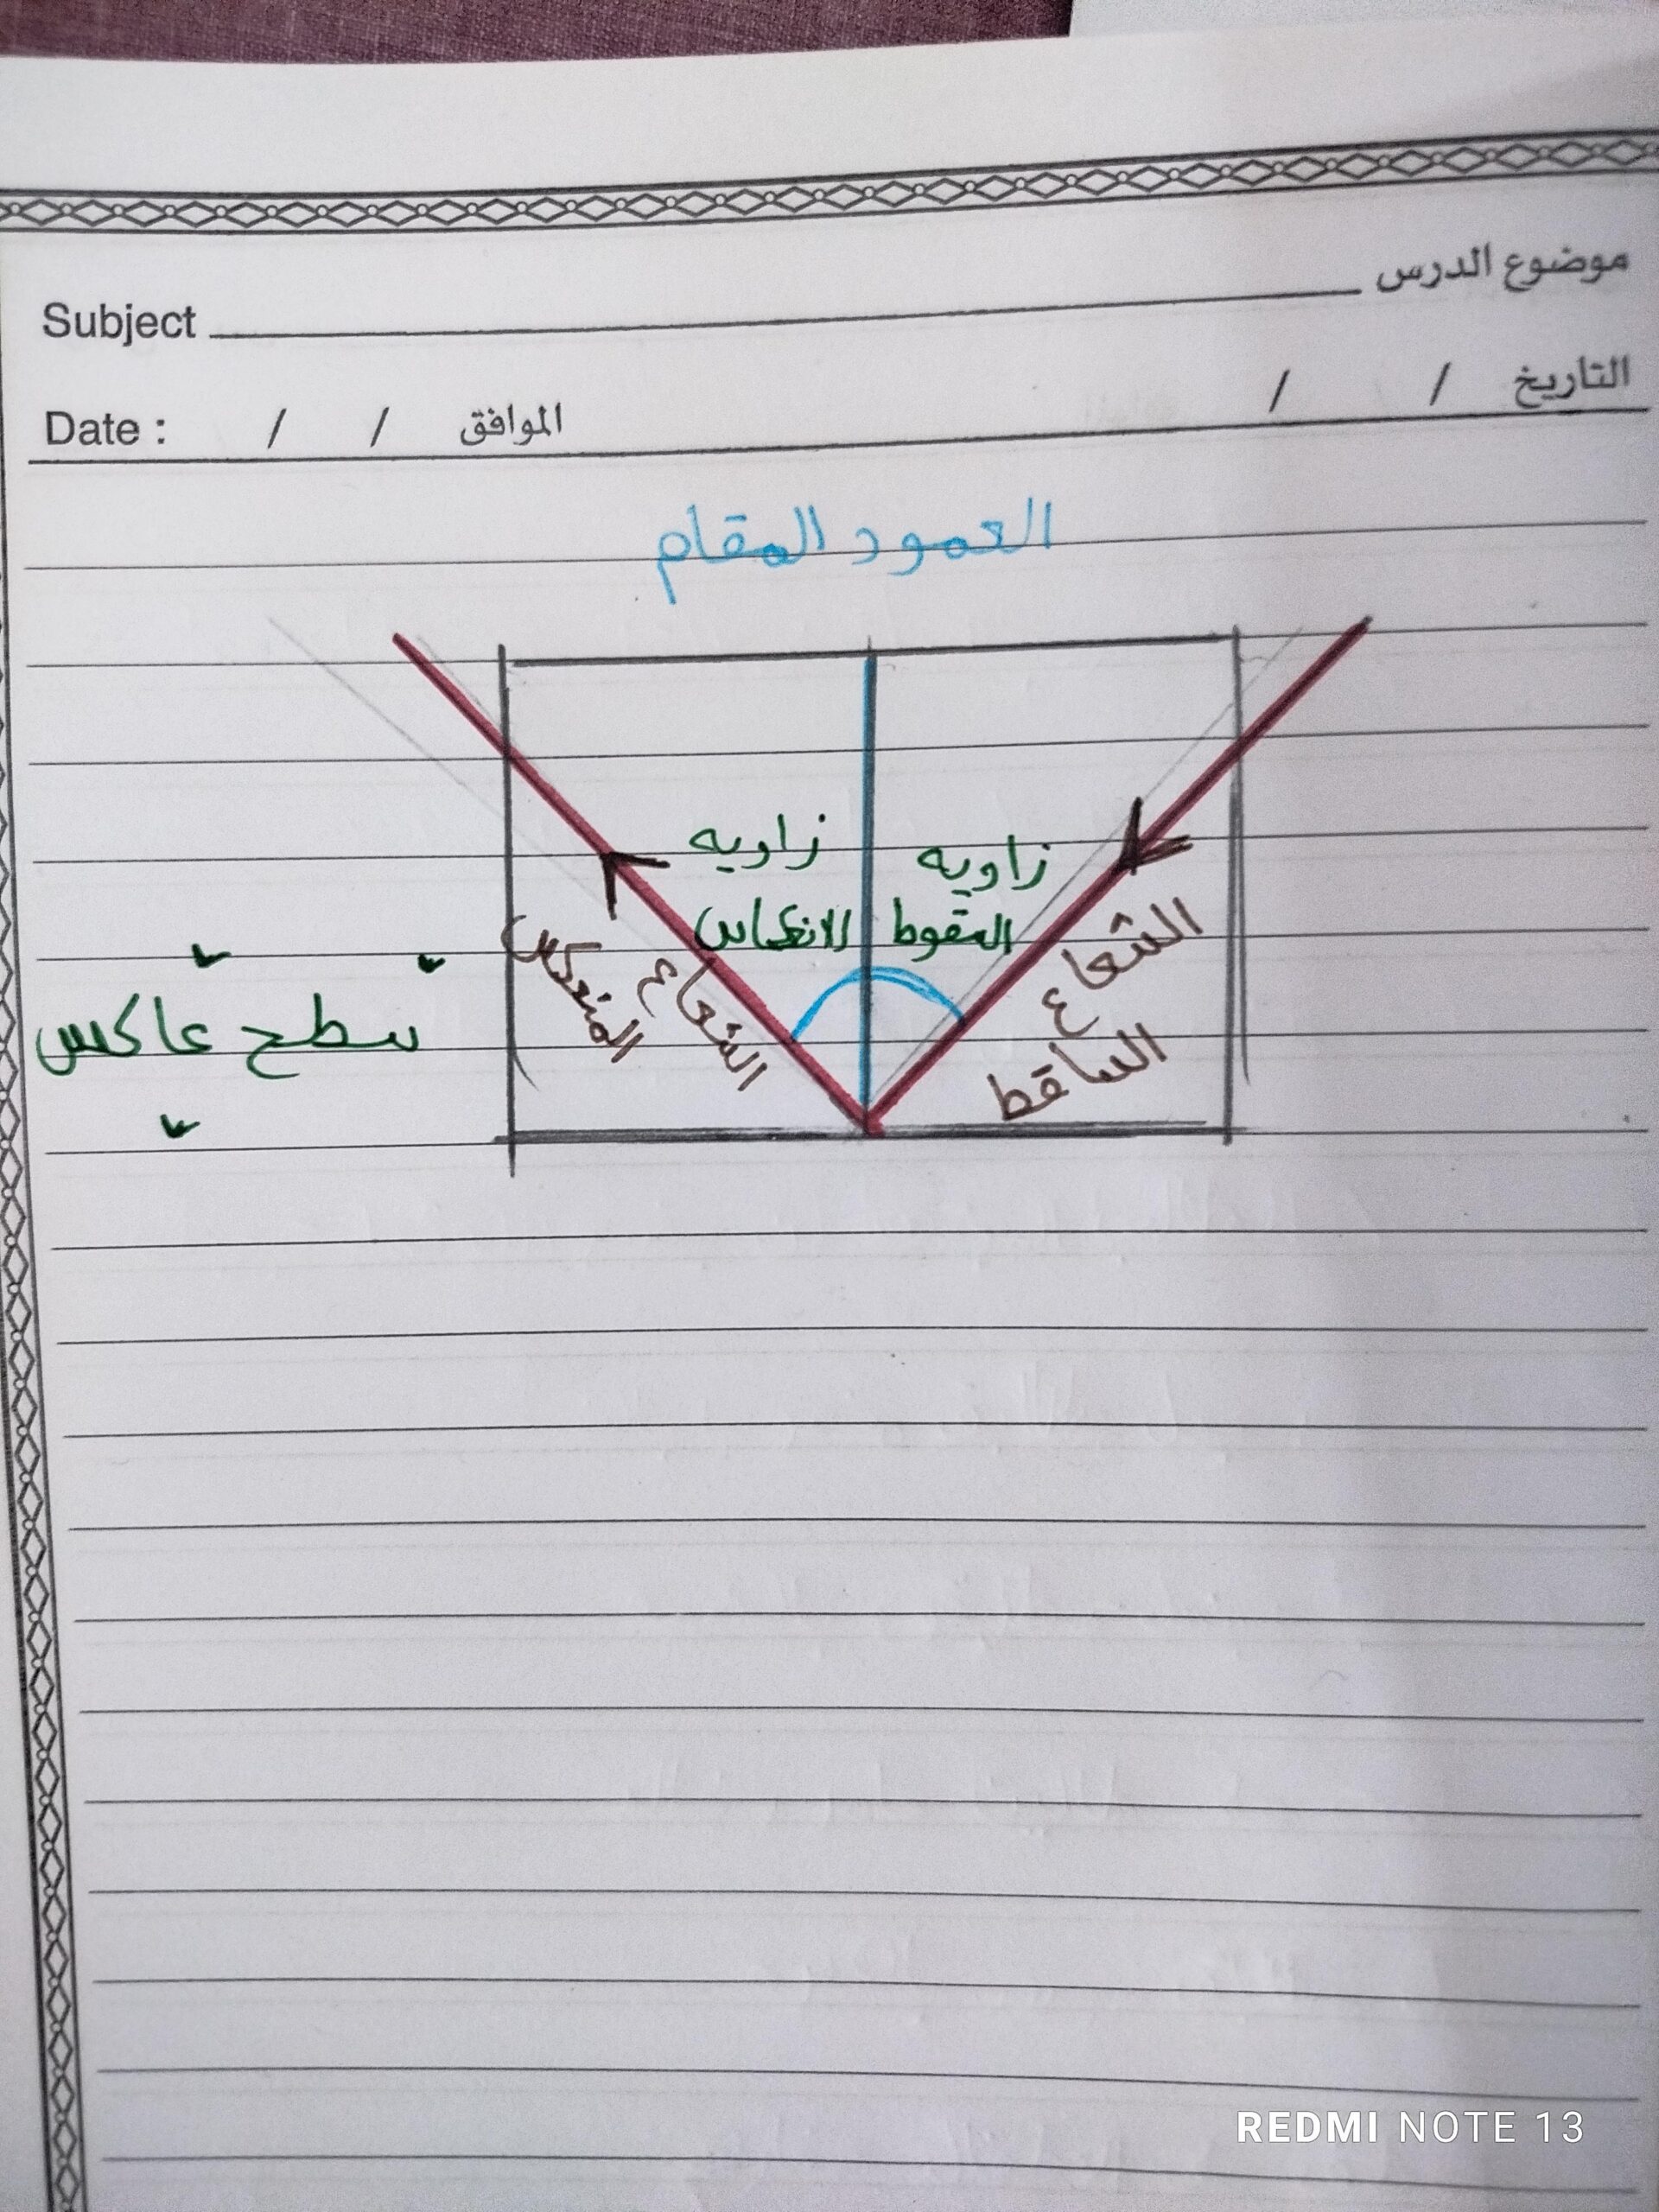 موضوع الدرس
Subject
التاريخ / /
الموافق / / Date :
العمود المقام
زاويه
السقوط
زاويه
الانعكاس
الشعاع
الساقط
الشعاع
المنعكس
سطح عاكس
REDMI NOTE 13